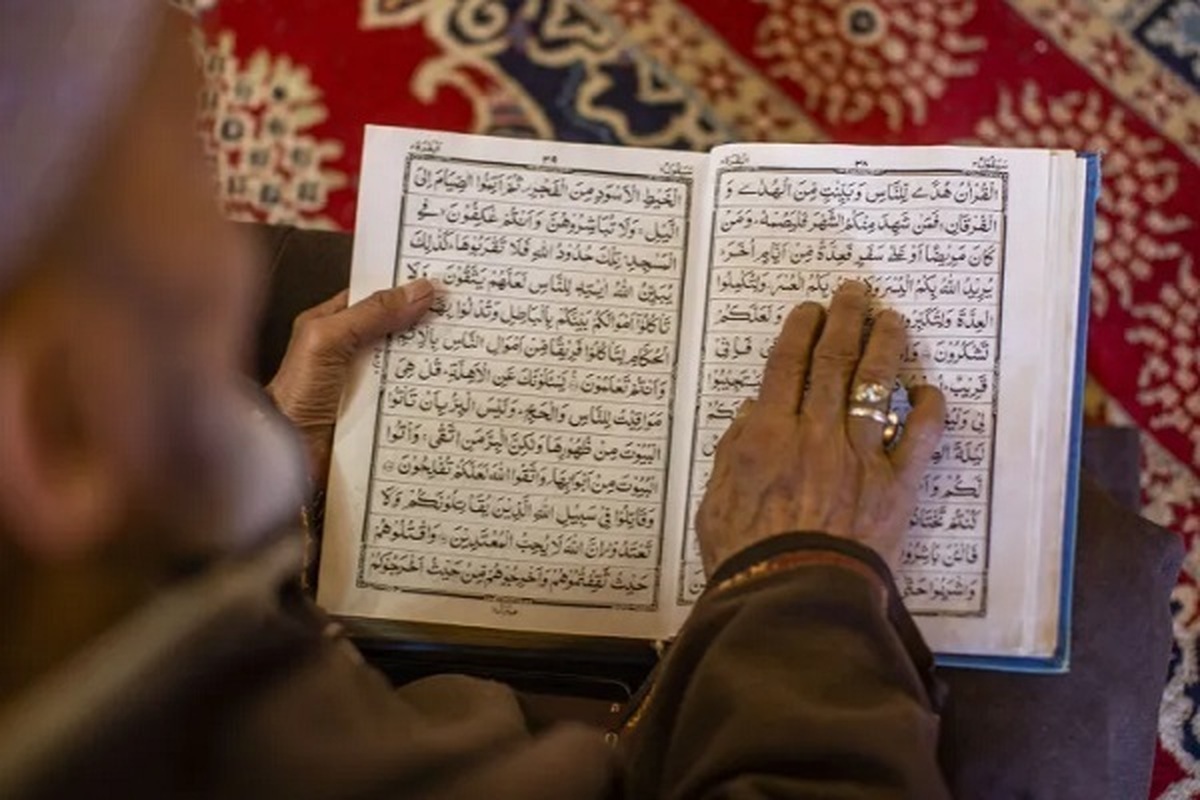 سیقول ۲ ۳۸ البقرة ۲
الْقُرْاٰنُ هُدًى لِّلنَّاسِ وَبَيِّنٰتٍ مِّنَ الْهُدٰى وَ
الْفُرْقَانِ ۚ فَمَنْ شَهِدَ مِنْكُمُ الشَّهْرَ فَلْيَصُمْهُ ؕ وَمَنْ
كَانَ مَرِيْضًا اَوْ عَلٰى سَفَرٍ فَعِدَّةٌ مِّنْ اَيَّامٍ اُخَرَ ؕ
يُرِيْدُ اللّٰهُ بِكُمُ الْيُسْرَ وَلَا بِكُمُ الْعُسْرَ ؗ وَلِتُكْمِلُوا
الْعِدَّةَ وَلِتُكَبِّرُوا وَلَعَلَّكُمْ
تَشْكُرُوْنَ فَاِنِّيْ
قَرِيْبٌ
لِيْ
لَيْلَةَ
لَكُمْ
كُنْتُمْ
فَالْـٰٔنَ
وَاشْرَبُوْا حَتّٰى
سیقول ۲ ۳۹ البقرة ۲
الْخَيْطِ الْاَسْوَدِ مِنَ الْفَجْرِ ۪ ثُمَّ اَتِمُّوا الصِّيَامَ اِلَى
الَّيْلِ ۚ وَلَا تُبَاشِرُوْهُنَّ وَاَنْتُمْ عٰكِفُوْنَ ۙ فِي
الْمَسٰجِدِ ؕ تِلْكَ حُدُوْدُ اللّٰهِ فَلَا تَقْرَبُوْهَا ؕ كَذٰلِكَ
يُبَيِّنُ اللّٰهُ اٰيٰتِهٖ لِلنَّاسِ لَعَلَّهُمْ يَتَّقُوْنَ وَلَا
تَاْكُلُوْٓا اَمْوَالَكُمْ بَيْنَكُمْ بِالْبَاطِلِ وَتُدْلُوْا بِهَآ
الْحُكَّامِ لِتَاْكُلُوْا فَرِيْقًا مِّنْ اَمْوَالِ النَّاسِ بِالْاِثْمِ
وَاَنْتُمْ تَعْلَمُوْنَ يَسْـَٔلُوْنَكَ عَنِ الْاَهِلَّةِ ؕ قُلْ هِيَ
مَوَاقِيْتُ لِلنَّاسِ وَالْحَجِّ ؕ وَلَيْسَ الْبِرُّ بِاَنْ تَاْتُوا
الْبُيُوْتَ مِنْ ظُهُوْرِهَا وَلٰكِنَّ الْبِرَّ مَنِ اتَّقٰى ۚ وَاْتُوا
الْبُيُوْتَ مِنْ اَبْوَابِهَا ۪ وَاتَّقُوا اللّٰهَ لَعَلَّكُمْ تُفْلِحُوْنَ
وَقَاتِلُوْا فِيْ سَبِيْلِ اللّٰهِ الَّذِيْنَ يُقَاتِلُوْنَكُمْ وَلَا
تَعْتَدُوْا ؕ اِنَّ اللّٰهَ لَا يُحِبُّ الْمُعْتَدِيْنَ وَاقْتُلُوْهُمْ
حَيْثُ ثَقِفْتُمُوْهُمْ وَاَخْرِجُوْهُمْ مِّنْ حَيْثُ اَخْرَجُوْكُمْ